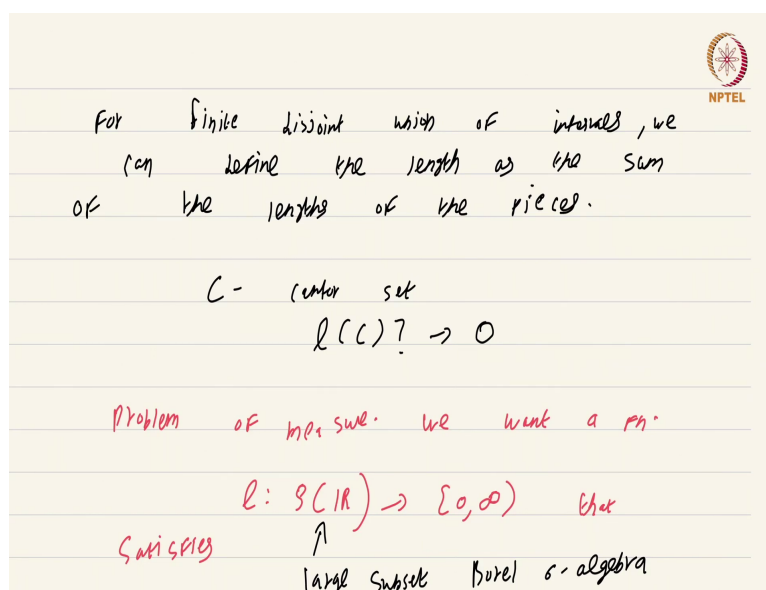 NPTEL
For finite disjoint union of intervals, we
can define the length as the sum
of the lengths of the pieces.
C - Cantor set
l(C)? → 0
Problem of measure. We want a fn.
l: P(ℝ) → [0,∞) that
satisfies ↑
large subset Borel σ-algebra